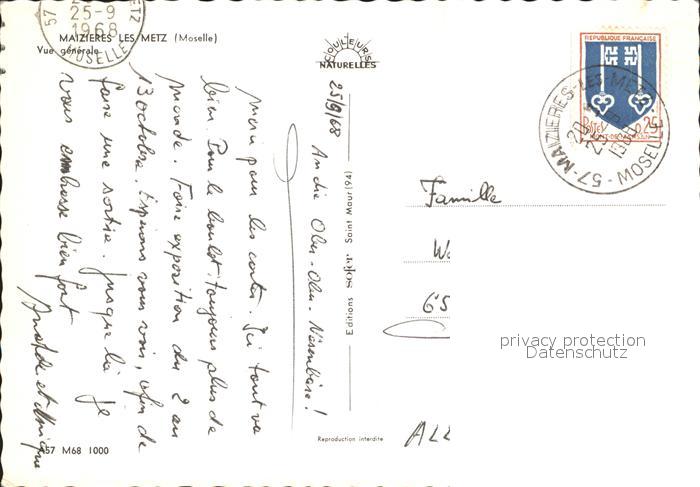 MAIZIERES LES METZ (Moselle)
Vue générale
57 METZ
25-9
1968
MOSELLE
COULEURS
NATURELLES
25/9/68
An die Ober-Ober
merci pour les cartes. Ici tout va
bien. Pour le boulot, toujours plus de
monde. Foire exposition du 2 au
13 octobre. Espérons vous voir, afin de
faire une sortie. Jusque là je
vous embrasse bien fort
et Monique
Editions Saint Maur (94)
Reproduction interdite
A57 M68 1000
REPUBLIQUE FRANÇAISE
POSTES 0,25
MONT-DE-MARSAN
57-MAIZIERES-LES-METZ
MOSELLE
Famille
W
65
ALL
privacy protection
Datenschutz